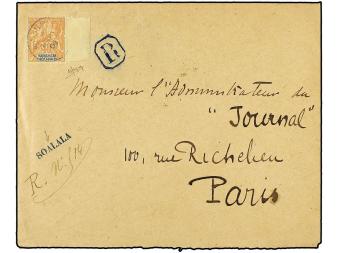 R
Monsieur l'Administrateur du
"Journal"
100, rue Richelieu
Paris
SOALALA
R. N°